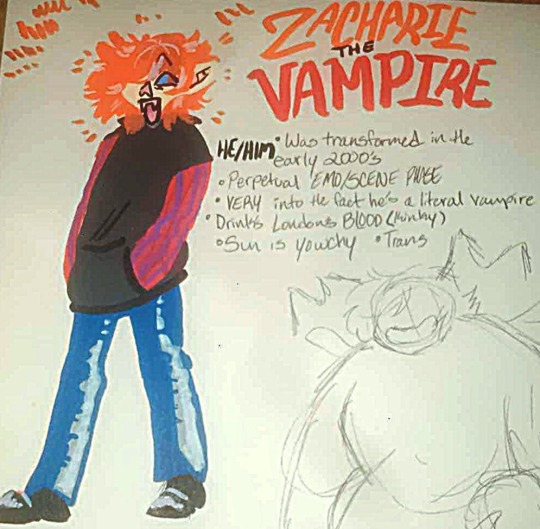 ZACHARIE
THE
VAMPIRE
HE/HIM • Was transformed in the
early 2000's
• Perpetual EMO/SCENE PHASE
• VERY into the fact he's a literal vampire
• Drinks Londons BLOOD (Kinky)
• Sun is yowchy • Trans